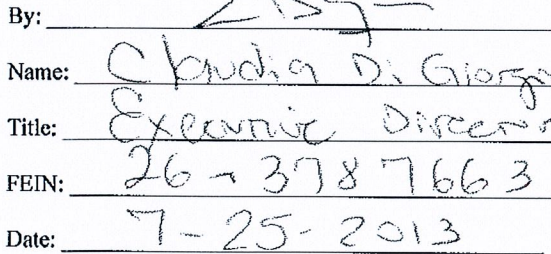 By:
Name: Claudia Di Giorgi
Title: Executive Director
FEIN: 26-3787663
Date: 7-25-2013